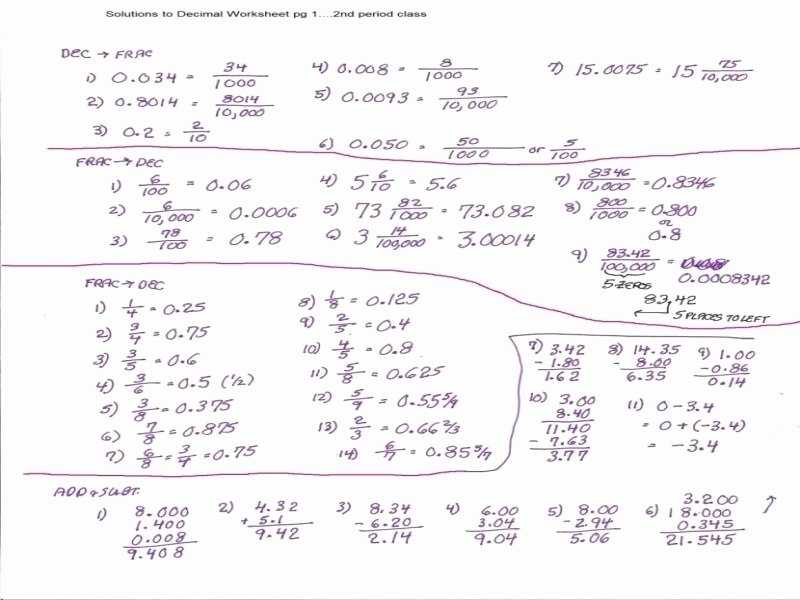 Solutions to Decimal Worksheet pg 1....2nd period class
DEC → FRAC
1) 0.034 = 34/1000
2) 0.8014 = 8014/10,000
3) 0.2 = 2/10
4) 0.008 = 8/1000
5) 0.0093 = 93/10,000
6) 0.050 = 50/1000 or 5/100
7) 15.0075 = 15 75/10,000
FRAC → DEC
1) 6/100 = 0.06
2) 6/10,000 = 0.0006
3) 78/100 = 0.78
4) 5 6/10 = 5.6
5) 73 82/1000 = 73.082
6) 3 14/100,000 = 3.00014
7) 8346/10,000 = 0.8346
8) 800/1000 = 0.800
or
0.8
9) 83.42/100,000 =
0.0008342
5 ZEROS
83.42
5 PLACES TO LEFT
FRAC → DEC
1) 1/4 = 0.25
2) 3/4 = 0.75
3) 3/5 = 0.6
4) 3/6 = 0.5 (1/2)
5) 3/8 = 0.375
6) 7/8 = 0.875
7) 6/8 = 3/4 = 0.75
8) 1/8 = 0.125
9) 2/5 = 0.4
10) 4/5 = 0.8
11) 5/8 = 0.625
12) 5/9 = 0.55 5/9
13) 2/3 = 0.66 2/3
14) 6/7 = 0.85 5/7
7) 3.42
- 1.80
1.62
8) 14.35
- 8.00
6.35
9) 1.00
- 0.86
0.14
10) 3.00
8.40
11.40
- 7.63
3.77
11) 0 - 3.4
= 0 + (-3.4)
= -3.4
ADD & SUBT.
1) 8.000
1.400
0.008
9.408
2) 4.32
+ 5.1
9.42
3) 8.34
- 6.20
2.14
4) 6.00
3.04
9.04
5) 8.00
- 2.94
5.06
6) 3.200
18.000
0.345
21.545